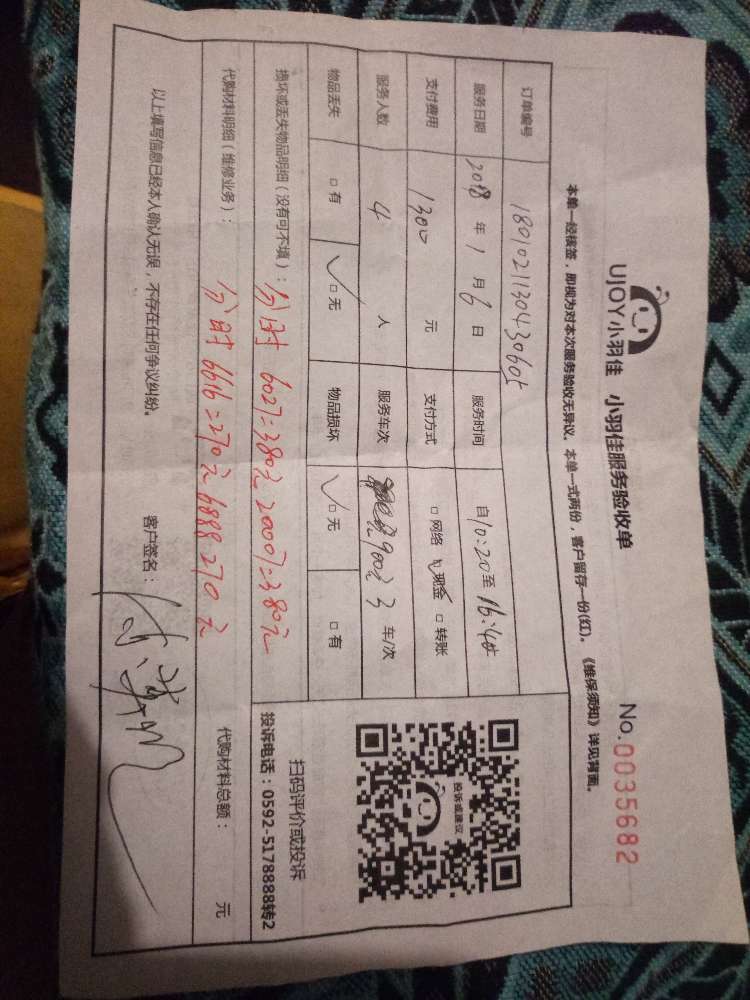 UJOY小羽佳 小羽佳服务验收单 No.0035682
本单一经核签，即视为对本次服务验收无异议。本单一式两份，客户留存一份(红)。《维保须知》详见背面。
订单编号 18010211304430605
服务日期 2018 年 1 月 6 日 服务时间 自10:20至16:45
支付费用 1300 元 支付方式 □网络 □现金 □转账
服务人数 4 人 服务车次 900元 3 车/次
物品丢失 □有 □无 物品损坏 □无 □有
损坏或丢失物品明细（没有可不填）：分时 6027=380元 20007=380元
代购材料明细（维修业务）：分时 6616=270元 6888 270元 代购材料总额： 元
以上填写信息已经本人确认无误，不存在任何争议纠纷。 客户签名：
投诉或建议
扫码评价或投诉
投诉电话：0592-5178888转2